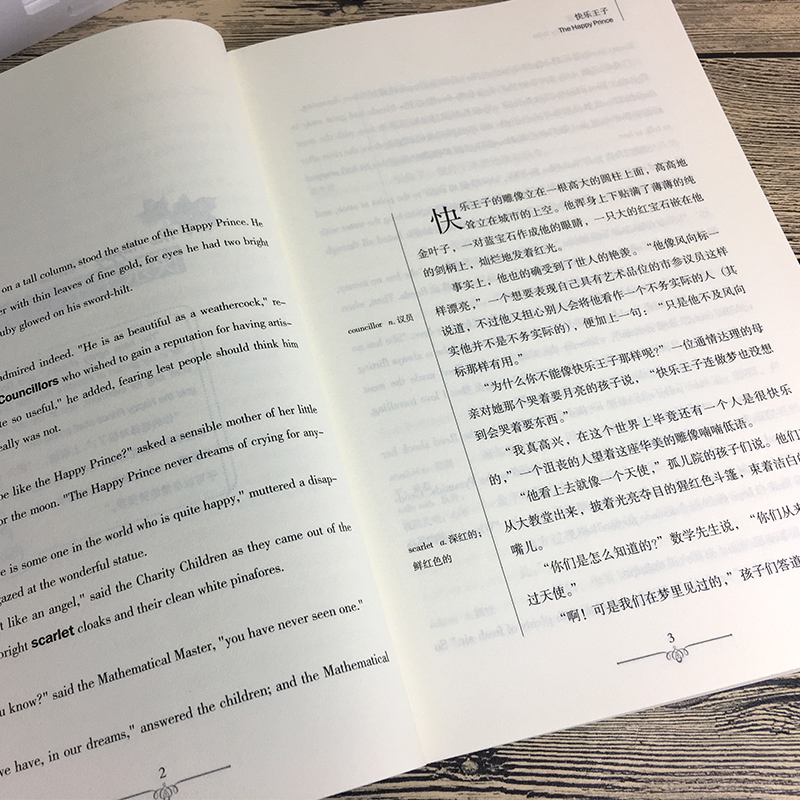 on a tall column, stood the statue of the Happy Prince. He
er with thin leaves of fine gold, for eyes he had two bright
uby glowed on his sword-hilt.
admired indeed. "He is as beautiful as a weathercock," re-
Councillors who wished to gain a reputation for having artis-
te so useful," he added, fearing lest people should think him
eally was not.
be like the Happy Prince?" asked a sensible mother of her little
or the moon. "The Happy Prince never dreams of crying for any-
e is some one in the world who is quite happy," muttered a disap-
gazed at the wonderful statue.
t like an angel," said the Charity Children as they came out of the
bright scarlet cloaks and their clean white pinafores.
u know?" said the Mathematical Master, "you have never seen one."
ve have, in our dreams," answered the children; and the Mathematical
2
快乐王子
The Happy Prince
快乐王子的雕像立在一根高大的圆柱上面，高高地
耸立在城市的上空。他浑身上下贴满了薄薄的纯
金叶子，一对蓝宝石作成他的眼睛，一只大的红宝石嵌在他
的剑柄上，灿烂地发着红光。
事实上，他也的确受到了世人的艳羡。“他像风向标一
样漂亮，”一个想要表现自己具有艺术品位的市参议员这样
说道，不过他又担心别人会将他看作一个不务实际的人（其
实他并不是不务实际的），便加上一句：“只是他不及风向
标那样有用。”
“为什么你不能像快乐王子那样呢？”一位通情达理的母
亲对她那个哭着要月亮的孩子说，“快乐王子连做梦也没想
到会哭着要东西。”
“我真高兴，在这个世界上毕竟还有一个人是很快乐
的，”一个沮丧的人望着这座华美的雕像喃喃低语。
“他看上去就像一个天使，”孤儿院的孩子们说。他们
从大教堂出来，披着光亮夺目的猩红色斗篷，束着洁白的
嘴儿。
“你们是怎么知道的？”数学先生说，“你们从来
过天使。”
“啊！可是我们在梦里见过的，”孩子们答道
councillor n. 议员
scarlet a. 深红的；
鲜红色的
3